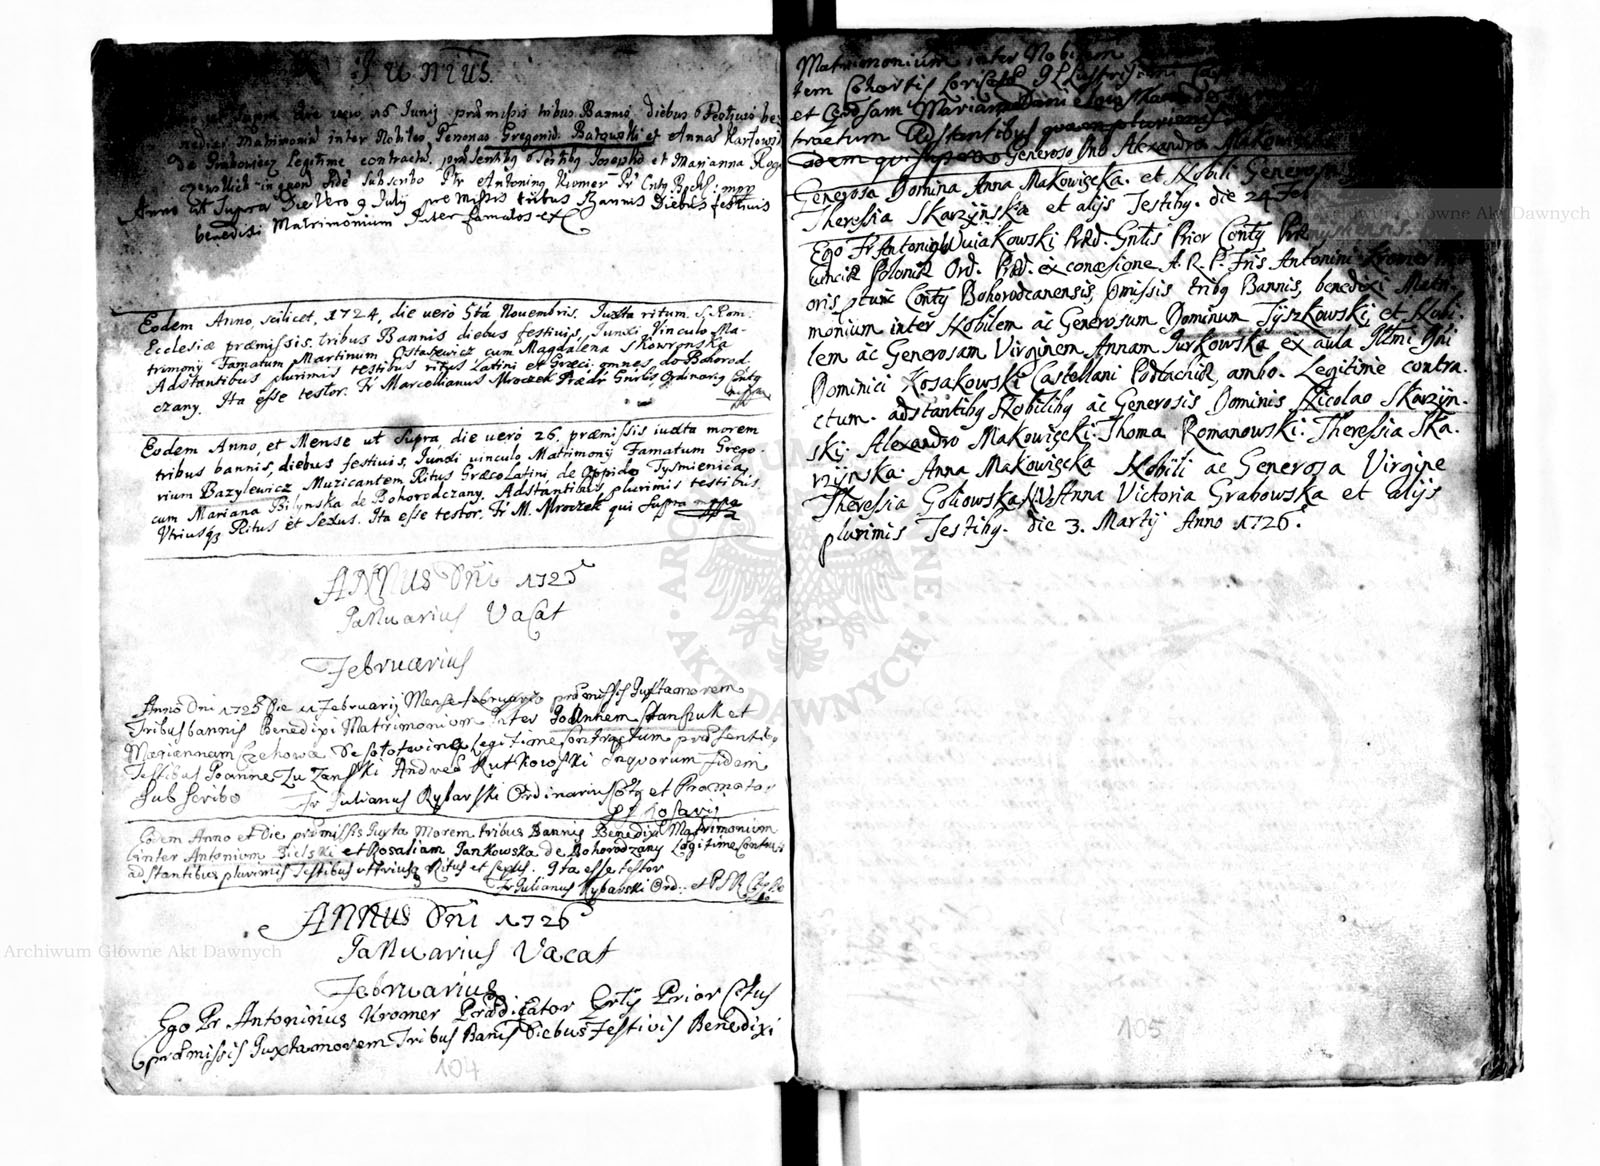 Junius.
ut Supra die vero 26 Junij præmissis tribus Bannis diebus Festivis be
nedixi Matrimoniū inter Nobiles Personas Gregoriū Baczynski et Annā Karłowsk
de Grabowiecz Legitime contractū. præsentibq Testibq Josepho et Marianna
in quorū fidē subscribo Fr Antoninq Kromer Pr Cntq Boh: mpp
Anno ut Supra Die Vero 9 Julij præmissis tribus Bannis Diebus festivis
benedixi Matrimonium Inter famatos etC
Eodem Anno, scilicet, 1724, die uerò 5tá Novembris. Juxta ritum. S. Rom:
Ecclesiæ præmissis. tribus Bannis diebus festiuis, Junxi Vinculo Ma-
trimony Famatum Martinum Ostasewicz cum Magdalena Skowronska
Adstantibus plurimis testibus ritus Latini et Græci. omnes de Bohorod
czany. Ita esse testor. Fr Marcellianus Mroczek Prædr Gnrlis Ordinariq Cnty
Eodem Anno, et Mense ut Supra, die uerò 26. præmissis iuxta morem
tribus bannis, diebus festiuis, Junxi uinculo Matrimony Famatum Grego-
rium Bazylewicz Muzicantem Ritus Græco Latini, de Oppido Tysmienica,
cum Mariana Bilynska de Bohorodczany. Adstantibus plurimis testibus
Vtriusq3 Ritus et Sexus. Ita esse testor. Fr M. Mroczek qui supra mppa
ANNUS Dni 1725
JaNuarius VaCat
Februarius
Anno Dni 1725 Die 11 Februarij Mense februario præmissis Juxta morem
Tribus bannis Benedixi Matrimonium Inter Joannem Stanszuk et
Mariannam Czehowa De Sołotwina Legitime Contractum præsentibq
Testibus Joanne Zuzanski Andreâ Rutkowski Inquorum fidem
Subscribo Fr Julianus Rybarski Ordinarius et Promotor
SS Rosarij
Eodem Anno et Die præmissis Juxta Morem tribus Bannis Benedixi Matrimonium
inter Antonium Bielski et Rosaliam Jankowska de Bohorodzany Legitime Contra
adstantibus plurimis Testibus vtriusq Ritus et sexus. Ita esse testor
Fr Julianus Rybarski Ord: et PSR
ANNUS Dni 1726
JaNuarius Vacat
Februarius
Ego Fr. Antoninus Kromer Prædicator Grlis Prior Cntus
præmissis Juxta morem Tribus Banis Diebus Festivis Benedixi
104
Matrimonium inter Nobilem
tem Cohortis Loricatæ
et Gñosam Mariannam
tractum Adstantibus quam plurimis
Generoso Dno Alexandro Makowiecki
Generosa Domina Anna Makowięcka. et Nobili Generosa
Theressia Skarzÿnska et alijs Testibq. die 24 Feb
Ego Fr Antoniq Wuiakowski Præd. Gnlis Prior Conty
uinciæ Poloniæ Ord. Præd. ex concesione A. R. P. Fris Antonini Kromer
oris ptunc Conty Bohorodcanensis, pmissis tribq Bannis, benedixi Matri-
monium inter Nobilem ac Generosum Dominum Tyszkowski, et Nobi-
lem ac Generosam Virginem Annam Jurkowska ex aula Illmi Gni
Dominici Kosakowski Castellani Podlachiæ, ambo. Legitimè contra-
ctum. adstantibq Nobilibq ac Generosis Dominis Nicolao Skarzÿn-
ski. Alexandro Makowięcki. Thoma Romanowski. Theressia Ska-
rzÿnska. Anna Makowięcka Nobili ac Generosa Virgine
Theressia Goliowska, Anna Victoria Grabowska et alijs
plurimis Testibq. die 3. Martij Anno 1726.
105
Archiwum Główne Akt Dawnych
Archiwum Główne Akt Dawnych
ARCHIWUM GŁÓWNE AKT DAWNYCH